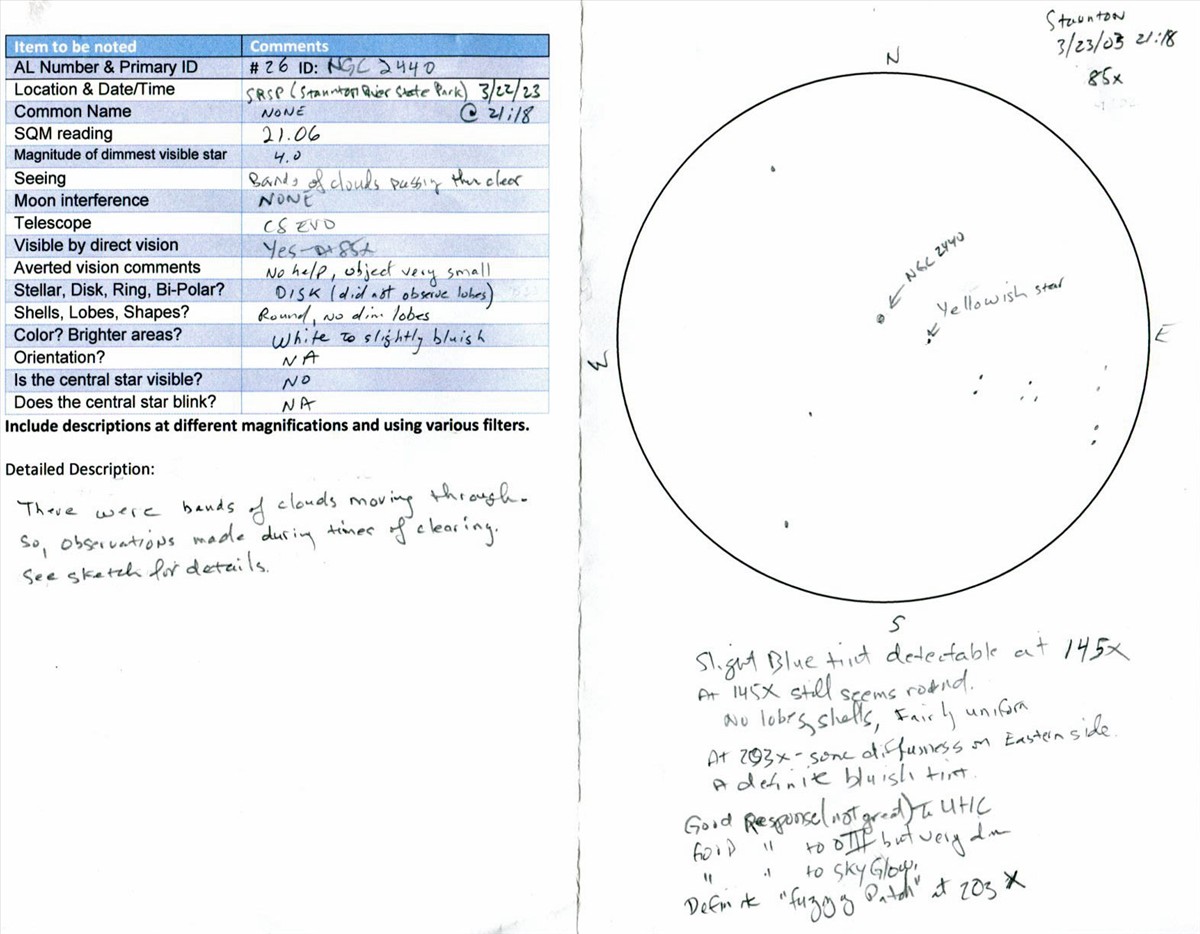 Item to be noted Comments
AL Number & Primary ID #26 ID: NGC 2440
Location & Date/Time SRSP (Staunton River State Park) 3/22/23
Common Name NONE @ 21:18
SQM reading 21.06
Magnitude of dimmest visible star 4.0
Seeing Bands of clouds passing thru clear
Moon interference NONE
Telescope C8 EVO
Visible by direct vision Yes - at 85x
Averted vision comments No help, object very small
Stellar, Disk, Ring, Bi-Polar? DISK (did not observe lobes)
Shells, Lobes, Shapes? Round, No dim lobes
Color? Brighter areas? White to slightly bluish
Orientation? NA
Is the central star visible? NO
Does the central star blink? NA
Include descriptions at different magnifications and using various filters.
Detailed Description:
There were bands of clouds moving through.
So, observations made during times of clearing.
See sketch for details.
Staunton
3/23/03 21:18
85x
N
NGC 2440
Yellowish star
W
E
S
Slight Blue tint detectable at 145x
At 145x still seems round.
No lobes, shells, Fairly uniform
At 203x - some diffusness on Eastern side.
A definite bluish tint.
Good Response (not great) to UHC
Good " to OIII but very dim
" " to SkyGlow.
Definite "fuzzy Patch" at 203x